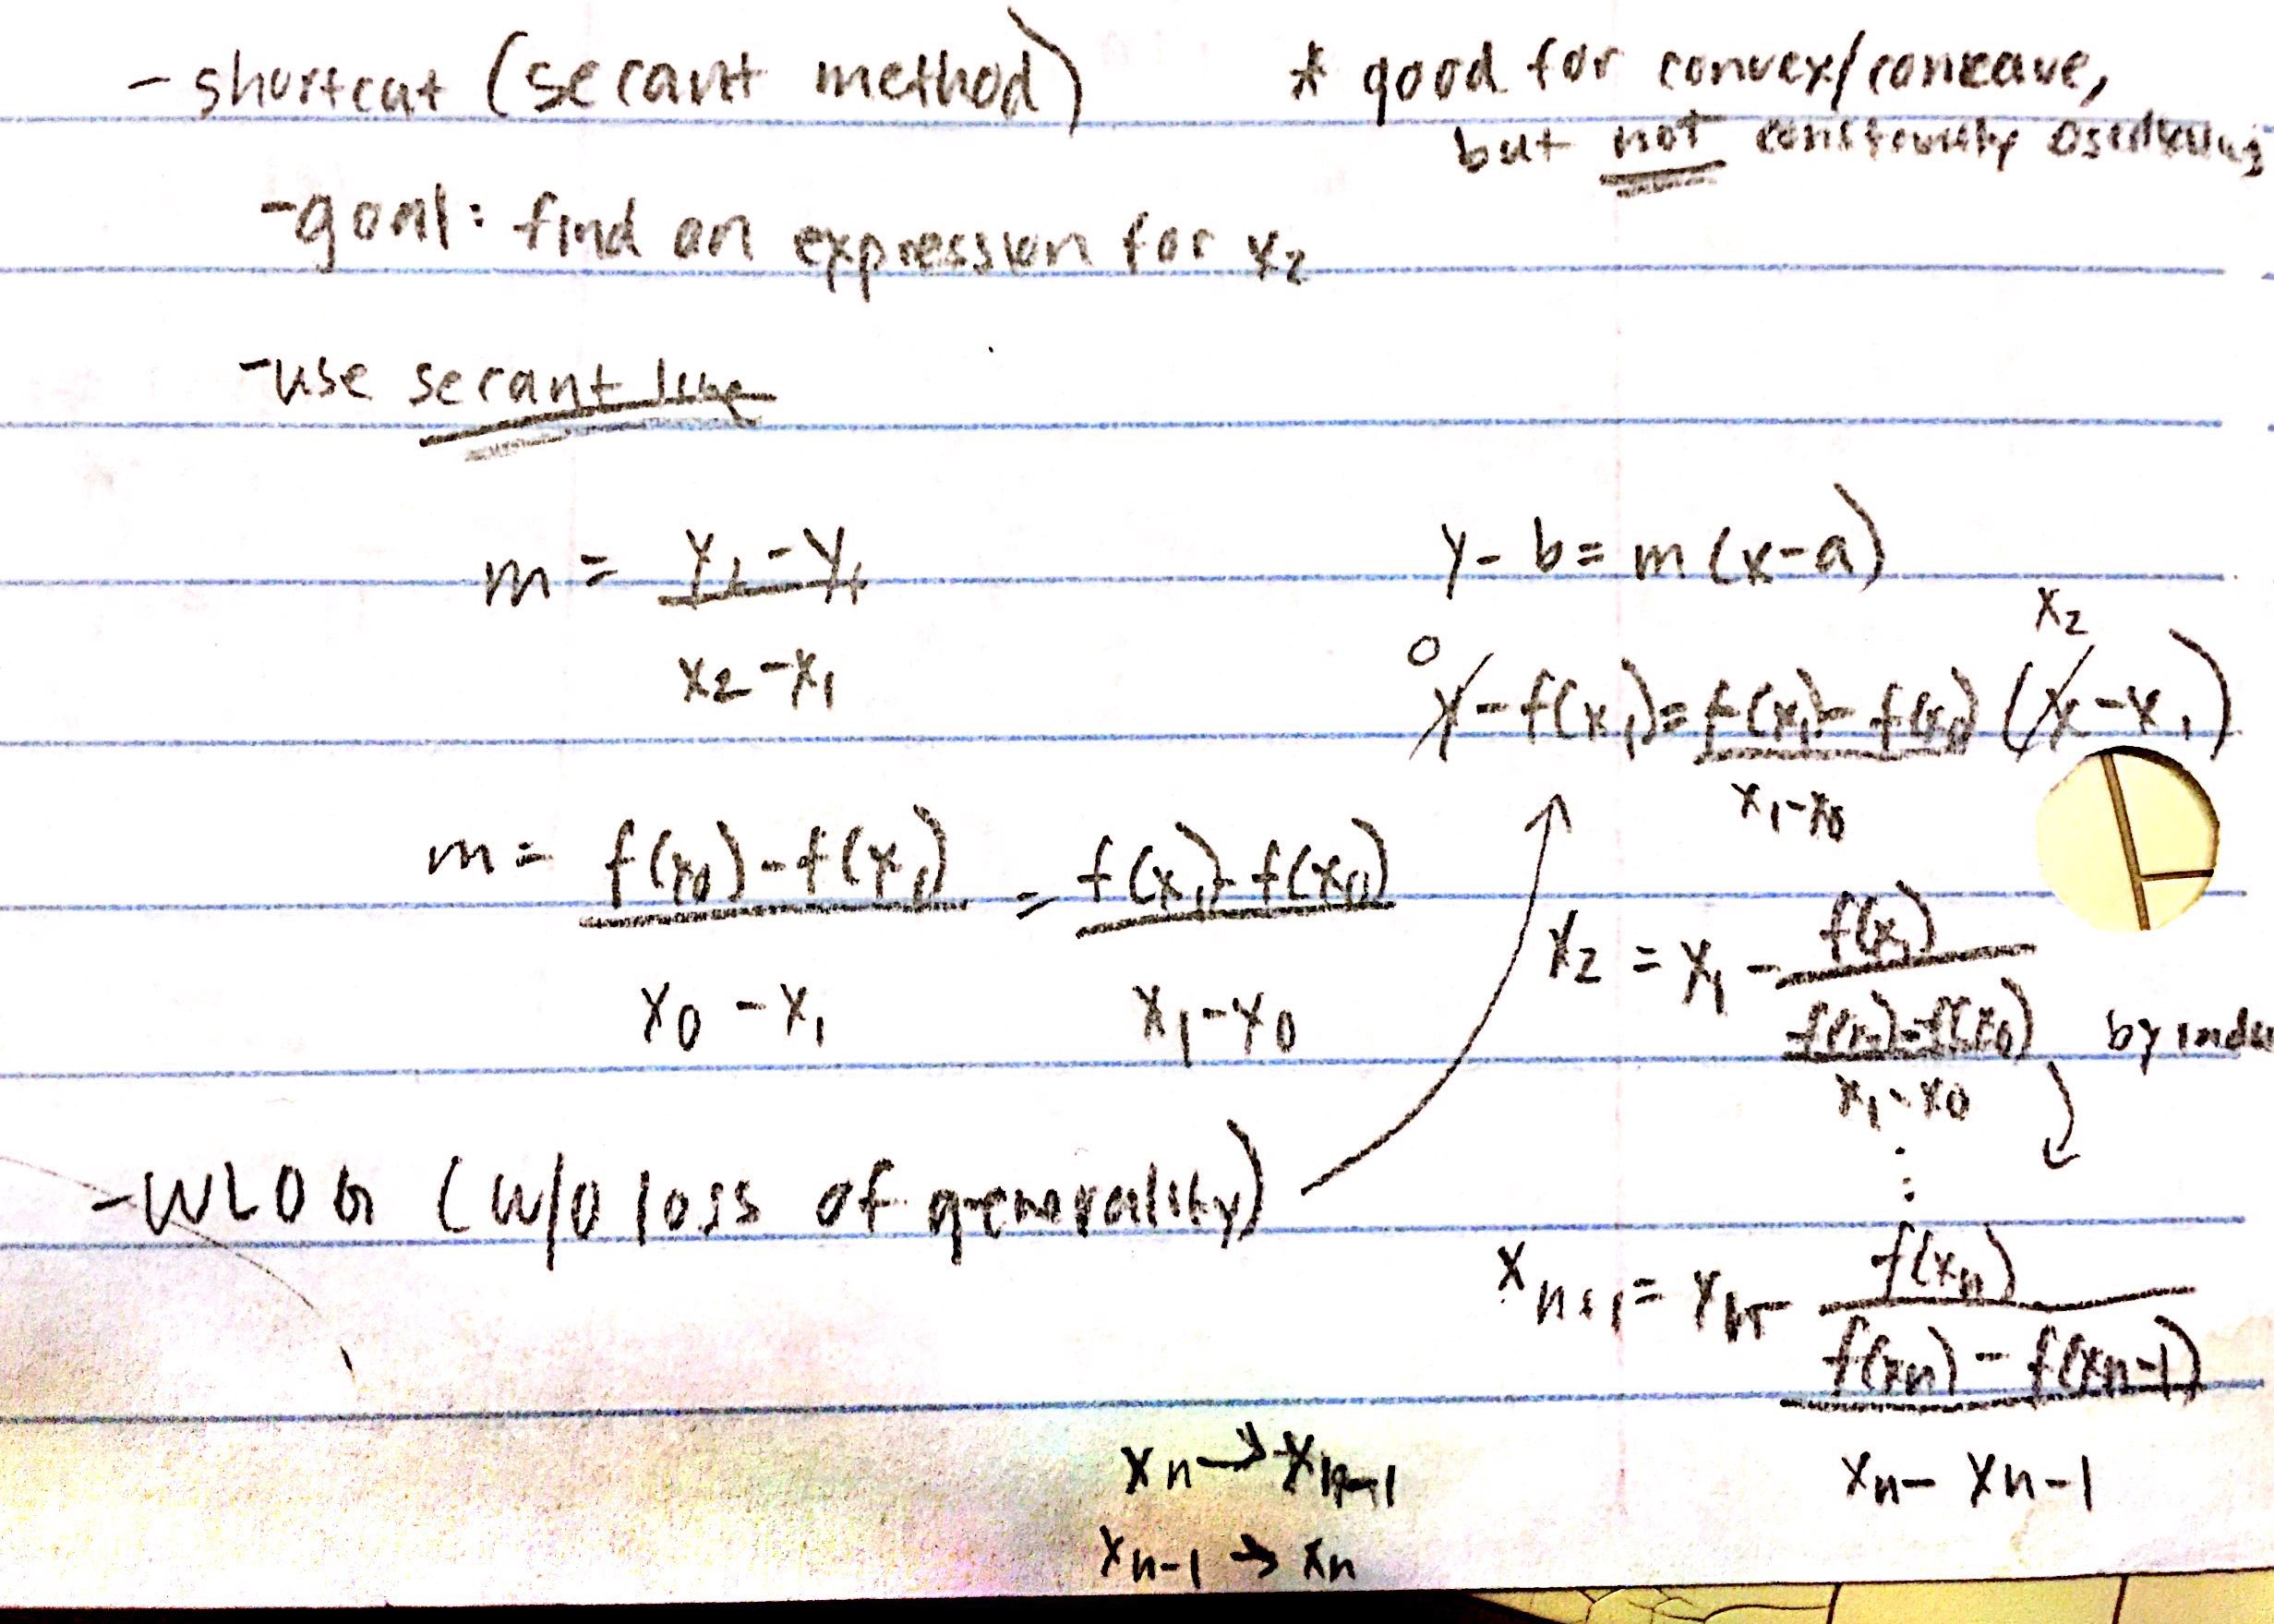 - shortcut (secant method)
* good for convex/concave,
but not constantly oscillating
- goal: find an expression for x₂
- use secant line
m = (y₂ - y₁)/(x₂ - x₁)
m = (f(x₀) - f(x₁))/(x₀ - x₁) = (f(x₁) - f(x₀))/(x₁ - x₀)
- WLOG (w/o loss of generality)
y - b = m(x - a)
0 x₂
y - f(x₁) = (f(x₁) - f(x₀))/(x₁ - x₀) (x - x₁)
x₂ = x₁ - f(x₁)/((f(x₁) - f(x₀))/(x₁ - x₀))
by indu
⋮
xₙ₊₁ = xₙ - f(xₙ)/((f(xₙ) - f(xₙ₋₁))/(xₙ - xₙ₋₁))
xₙ → xₙ₋₁
xₙ₋₁ → xₙ